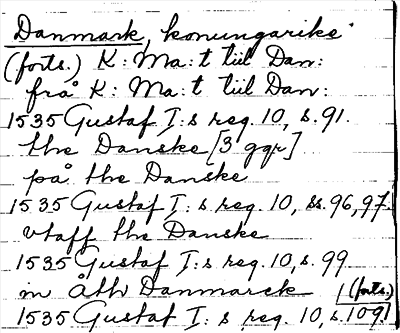 Danmark, konungarike
(forts.) K: Ma:t till Dan:
frå K: Ma:t till Dan:
1535 Gustaf I:s reg. 10, s. 91.
the Danske [3 ggr]
på the Danske
1535 Gustaf I:s reg. 10, ss. 96, 97.
vtaff the Danske
1535 Gustaf I:s reg. 10, s. 99
in åth Danmarck (forts.)
1535 Gustaf I:s reg. 10, s. 109